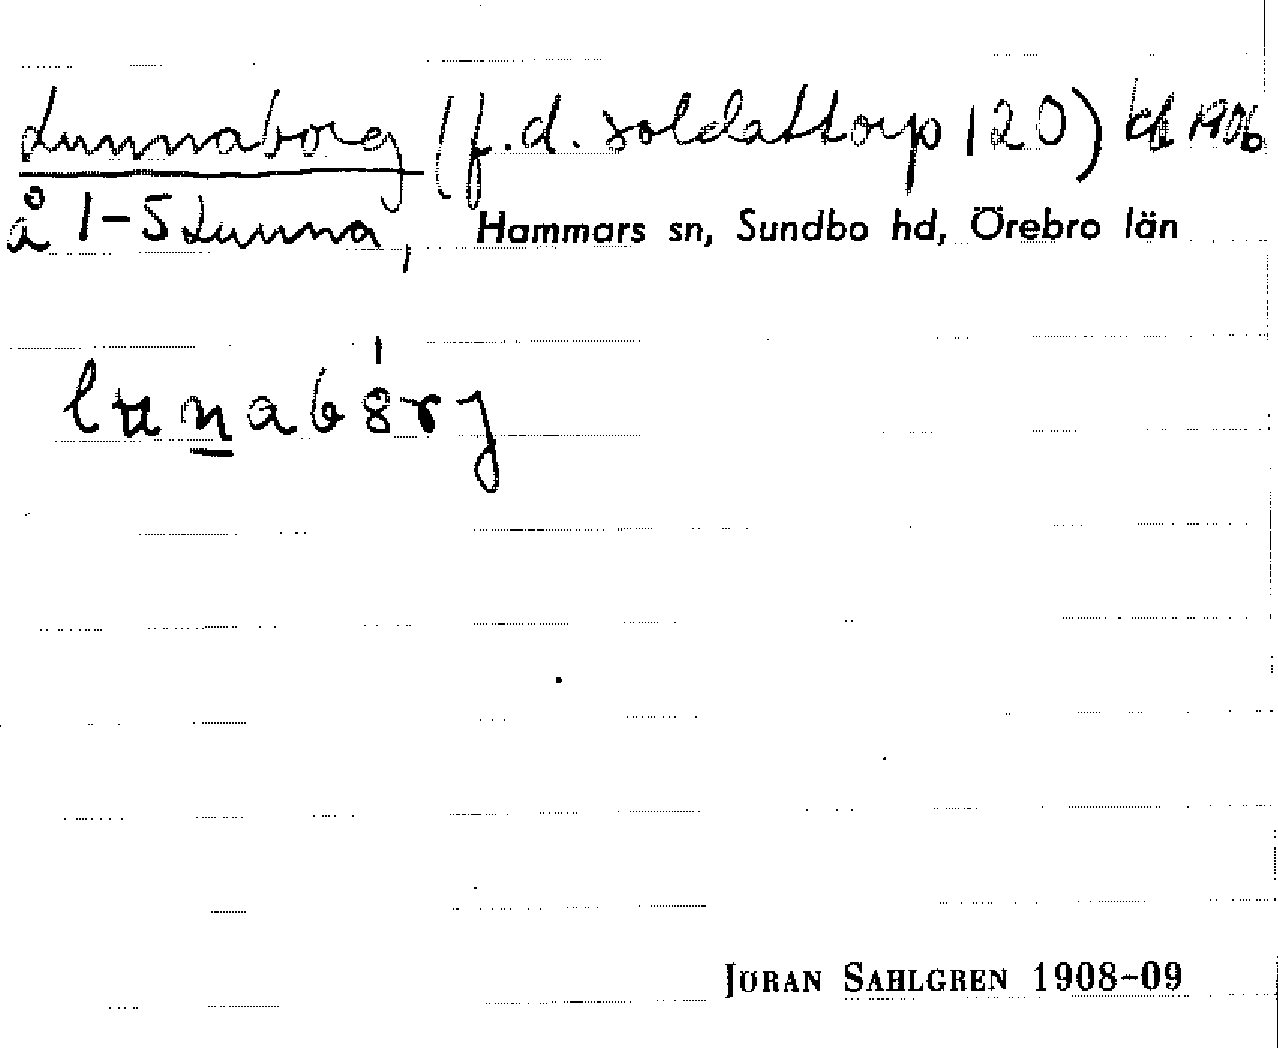 Lunnaborg (f.d. soldattorp 120) kl 1906
å 1-5 Lunna, Hammars sn, Sundbo hd, Örebro län
lunabårg
JÖRAN SAHLGREN 1908-09